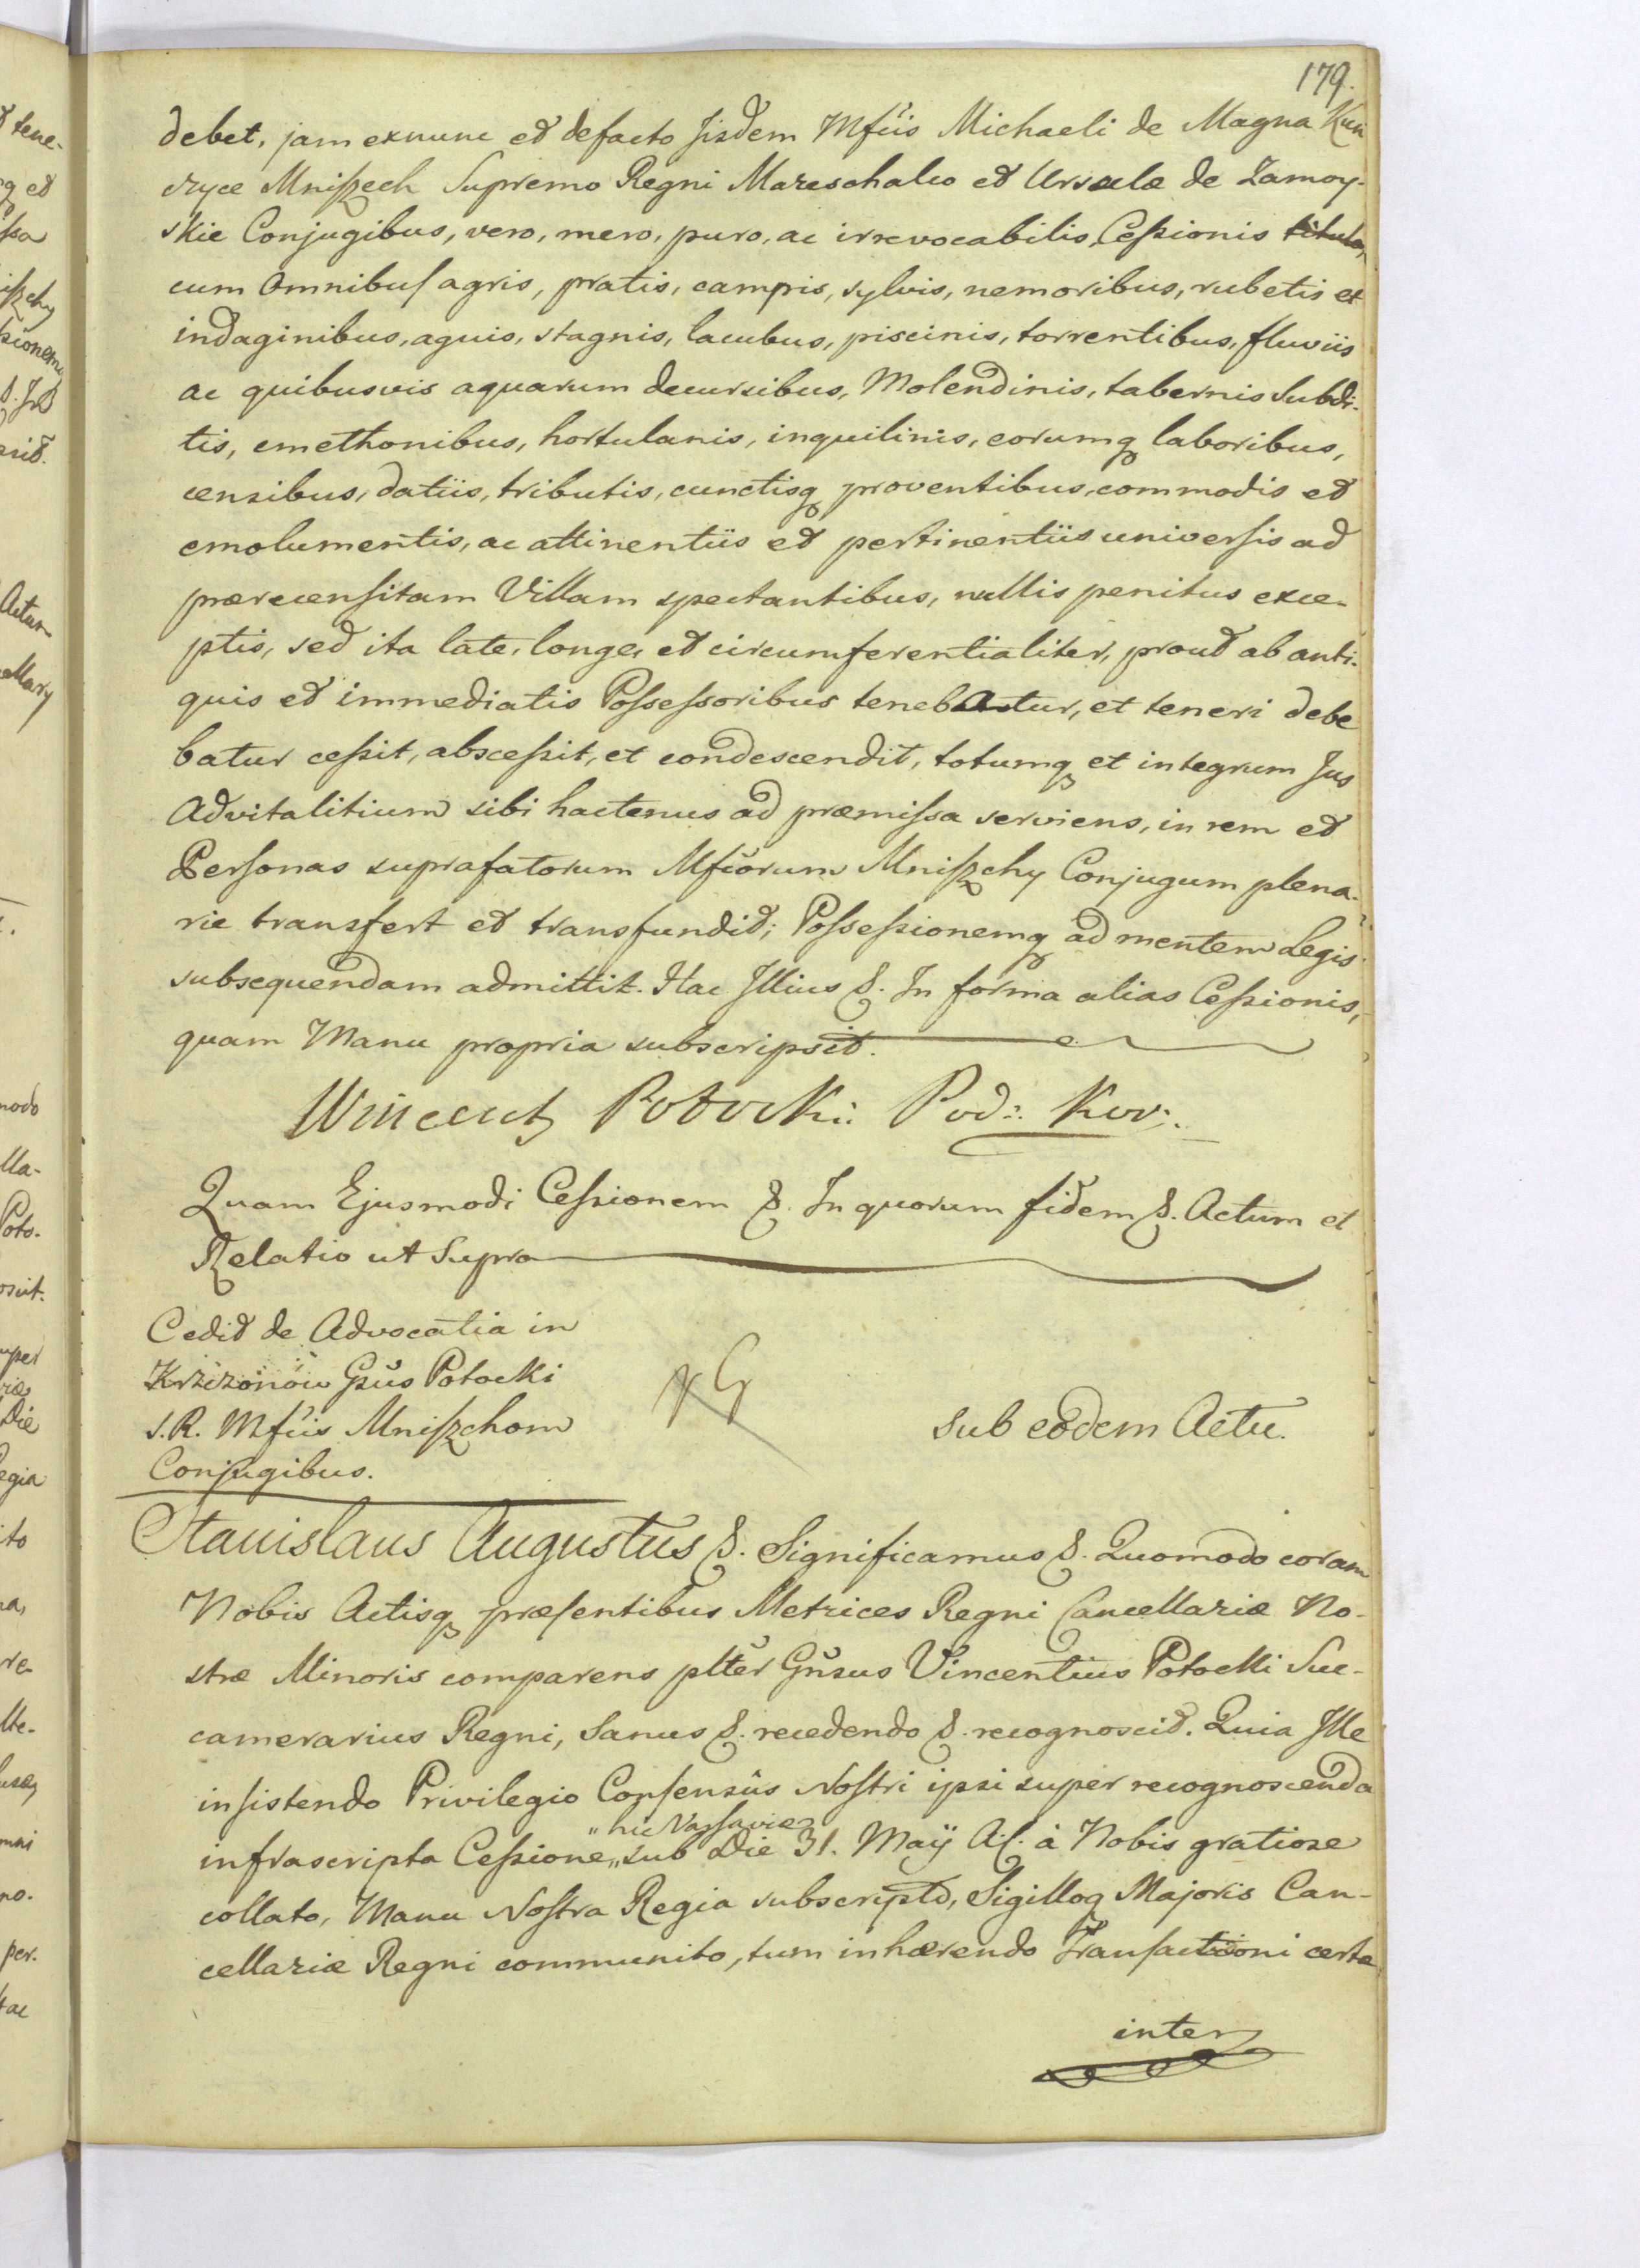 179.
debet, jam exnunc et defacto Jisdem Mfcis Michaeli de Magna Kun
czyce Mniszech Supremo Regni Mareschalco et Ursulæ de Zamoy-
skie Conjugibus, vero, mero, puro, ac irrevocabilis Cessionis titulo,
cum Omnibus agris, pratis, campis, sylvis, nemoribus, rubetis et
indaginibus, aquis, stagnis, lacubus, piscinis, torrentibus, fluviis
ac quibusvis aquarum decursibus, Molendinis, tabernis Subdi-
tis, cmethonibus, hortulanis, inquilinis, eorumq laboribus,
censibus, datiis, tributis, cunctisq proventibus, commodis et
emolumentis, ac attinentiis et pertinentiis universis ad
præcensitam Villam spectantibus, nullis penitus exce-
ptis, sed ita late, longe, et circumferentialiter, prout ab anti-
quis et immediatis Possessoribus tenebatur, et teneri debe
batur cessit, abscessit, et condescendit, totumq et integrum Jus
Advitalitium sibi hactenus ad præmissa serviens, in rem et
Personas suprafatorum Mfcorum Mniszchy Conjugum plena-
rie transfert et transfundit; Possessionemq ad mentem Legis
subsequendam admittit. Hac Illius &. In forma alias Cessionis,
quam Manu propria subscripsit.
Wincenty Potocki: Pod: Kor:
Quam Ejusmodi Cessionem &. In quorum fidem &. Actum et
Relatio ut Supra
Cedit de Advocatia in
Krziżonow Gsus Potocki
S.R. Mfcis Mniszchom
Conjugibus.
sub eodem Actu.
Stanislaus Augustus &. Significamus &. Quomodo coram
Nobis Actisq præsentibus Metrices Regni Cancellariæ No-
stræ Minoris comparens plter Gnsus Vincentius Potocki Suc-
camerarius Regni, Sanus &. recedendo &. recognoscit. Quia Ille
insistendo Privilegio Consensûs Nostri ipsi super recognoscenda
„hic Varsaviæ
infrascripta Cessione „sub Die 31. Maÿ A.c. à Nobis gratiose
collato, Manu Nostra Regia subscripto, Sigilloq Majoris Can-
cellariæ Regni communito, tum inhærendo Transactioni certæ
inter